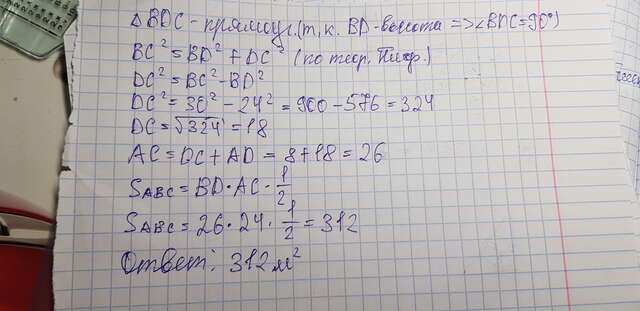 △BDC - прямоуг.(т.к. BD-высота => ∠BDC=90°)
BC² = BD² + DC² (по теор. Пифг.)
DC² = BC² - BD²
DC² = 30² - 24² = 900 - 576 = 324
DC = √324 = 18
AC = DC + AD = 8 + 18 = 26
SABC = BD · AC · 1/2
SABC = 26 · 24 · 1/2 = 312
Ответ: 312 м²